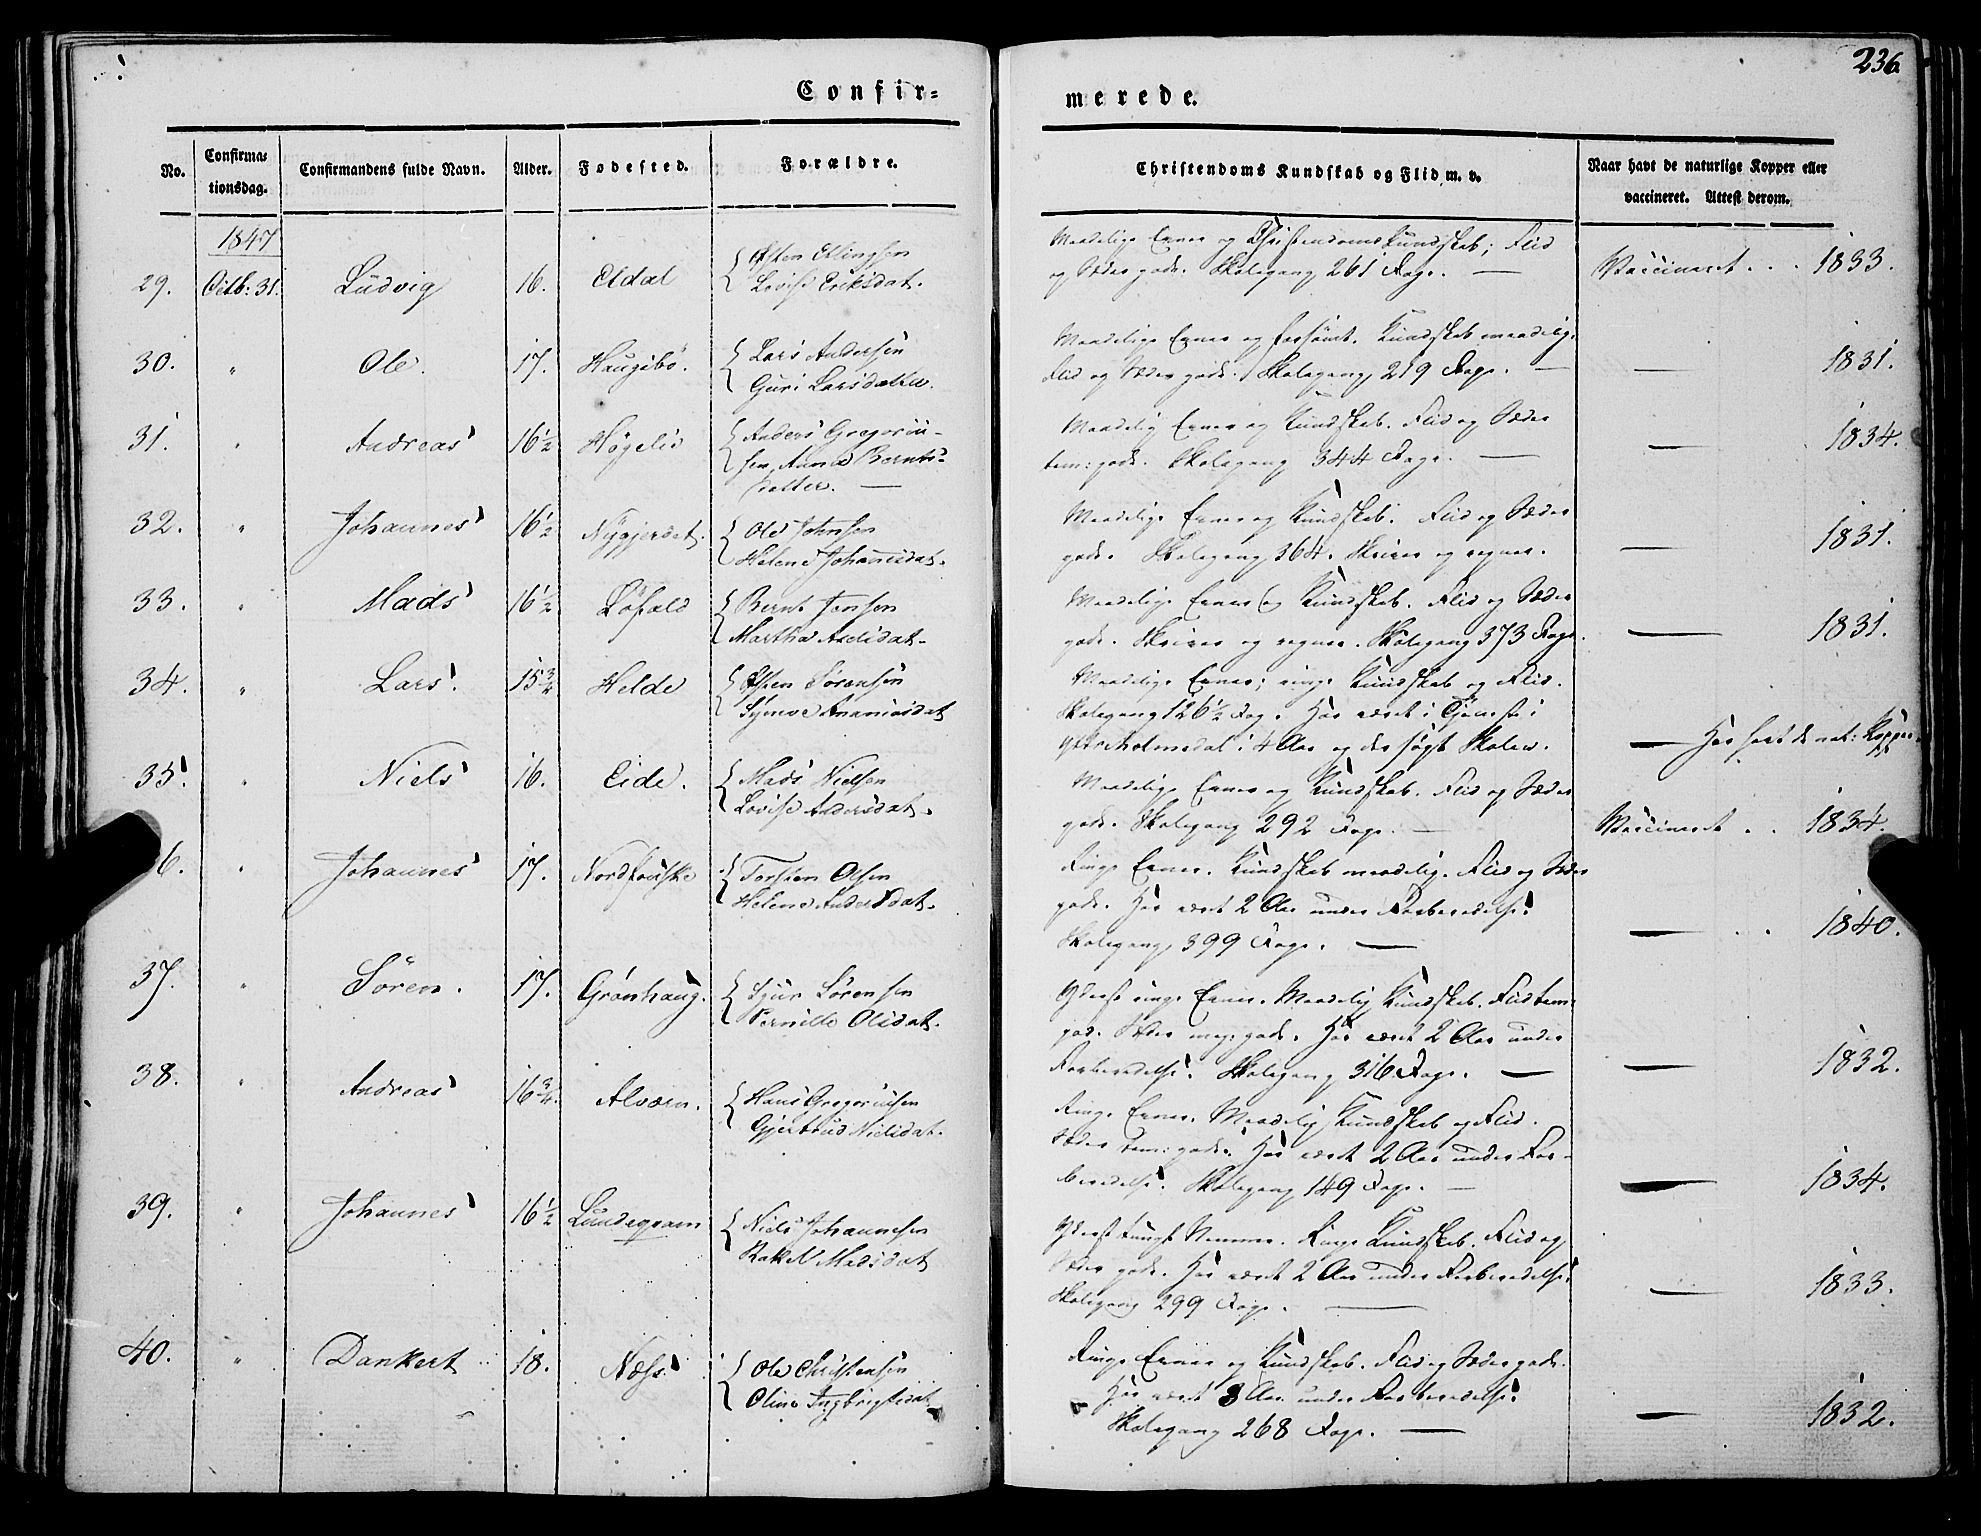 236
Confir=
merede.
No.
Confirma=
tionsdag.
Confirmandens fulde Navn.
Alder.
Fødested.
Forældre.
Christendoms Kundskab og Flid m. v.
Naar havt de naturlige Kopper eller
vaccineret. Attest derom.
1847
29. Octb: 31. Ludvig 16. Eldal
Østen Ellingsen
Lovise Eriksdat.
Maadelige Evner og Christendomskundskab; Flid
og Sæder gode. Skolegang 261 Dage. —
Vaccineret . . 1833.
30. " Ole. 17. Haugsbö.
Lars Andersen
Guri Larsdatter.
Maadelige Evner og forsömt. Kundskab maadelig.
Flid og Sæder gode. Skolegang 219 Dage. —
— 1831.
31. " Andreas 16½ Högelid
Anders Gregoriu-
sen, Anna Bernts-
datter. —
Maadelig Evner og Kundskab. Flid og Sæder
tem: gode. Skolegang 344 Dage. —
— 1834.
32. " Johannes 16½ Nygjerdet.
Ole Johnsen
Helene Johansdat.
Maadelige Evner og Kundskab. Flid og Sæder
gode. Skolegang 364. Skriver og regner.
— 1831.
33. " Mads 16½ Löfald
Bernt Jensen
Martha Axelsdat.
Maadelige Evner og Kundskab. Flid og Sæder
gode. Skriver og regner. Skolegang 373 Dage.
— 1831.
34. " Lars. 15¾ Helde
Østen Sörensen
Synove Ananiasdat
Maadelige Evner; ringe Kundskab og Flid.
Skolegang 126½ Dag. Har været i Tjeneste i
i 4 Aar og der sögt Skolen.
— Har havt de nat: Kopper.
35. " Niels 16. Eide.
Mads Nielsen
Lovise Andersdat.
Maadelige Evner og Kundskab. Flid og Sæder
gode. Skolegang 292 Dage. —
Vaccineret . . 1834.
6. " Johannes 17. Nordfouske
Torsten Olsen
Helene Andersdat.
Ringe Evner. Kundskab maadelig. Flid og Sæder
gode. Har været 2 Aar under Forberedelse.
Skolegang 399 Dage. —
— . . 1840.
37. " Sören. 17. Grönhaug.
Sjur Sörensen
Pernille Olsdat.
Yderst ringe Evner. Maadelig Kundskab. Flid tem:
god. Sæder meg: gode. Har været 2 Aar under
Forberedelse. Skolegang 316 Dage. —
— 1832.
38. " Andreas 16¾. Alværn.
Hans Gregoriusen
Gjertrud Nielsdat.
Ringe Evner. Maadelig Kundskab og Flid.
Sæder tem: gode. Har været 2 Aar under For-
beredelse. Skolegang 149 Dage. —
— 1834.
39. " Johannes 16½ Lundegjam
Niels Johannesen
Rakel Madsdat
Yderst tungt Nemme. Ringe Kundskab. Flid og
Sæder gode. Har været 2 Aar under Forberedelse.
Skolegang 299 Dage. —
— 1833.
40. " Dankert 18. Næss
Ole Christensen
Oline Ingbrigtsdat.
Ringe Evner og Kundskab. Flid og Sæder gode.
Har været 3 Aar under Forberedelse.
Skolegang 268 Dage. —
— 1832.